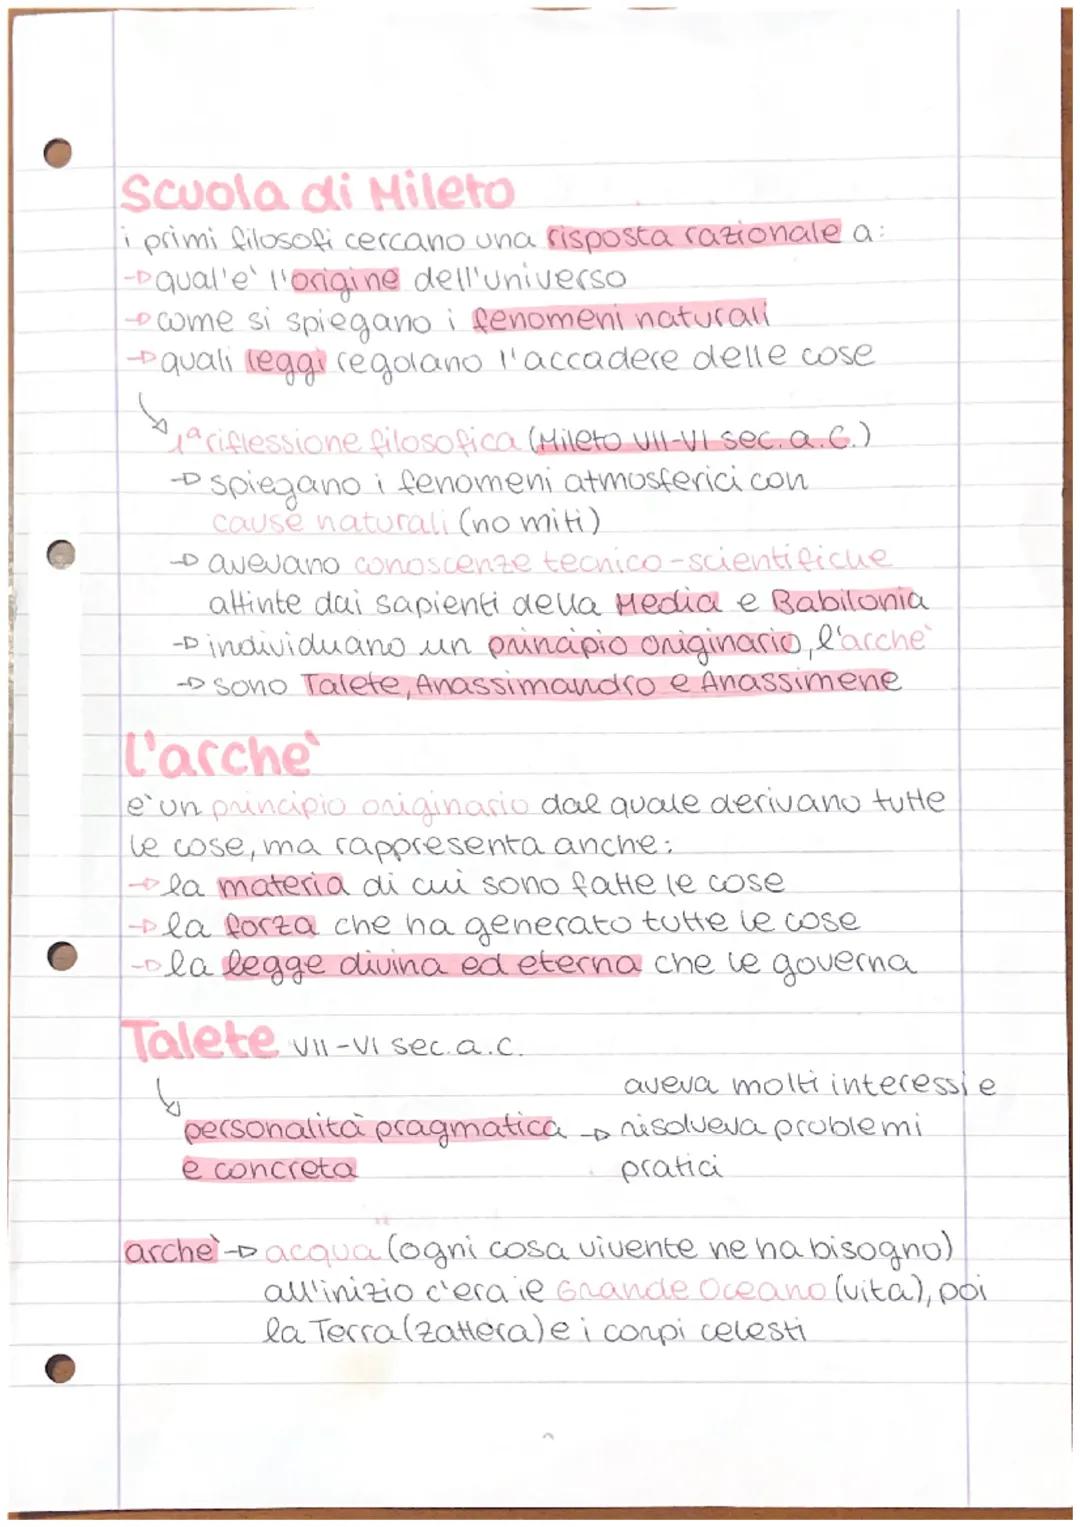 Scuola di Mileto
i primi filosofi cercano una risposta razionale a:
→ qual'e' l'origine dell'universo
→ come si spiegano i fenomeni naturali
→ quali leggi regolano l'accadere delle cose
1ª riflessione filosofica (Mileto VII-VI sec. a.C.)
→ spiegano i fenomeni atmosferici con
cause naturali (no miti)
→ avevano conoscenze tecnico-scientifiche
attinte dai sapienti della Media e Babilonia
→ individuano un principio originario, l'arche'
→ sono Talete, Anassimandro e Anassimene
l'arche'
e' un principio originario dal quale derivano tutte
le cose, ma rappresenta anche:
→ la materia di cui sono fatte le cose
→ la forza che ha generato tutte le cose
→ la legge divina ed eterna che le governa
Talete VII-VI sec. a.c.
aveva molti interessi e
personalità pragmatica → risolveva problemi
e concreta pratici
arche' → acqua (ogni cosa vivente ne ha bisogno)
all'inizio c'era il Grande Oceano (vita), poi
la Terra (zattera) e i corpi celesti